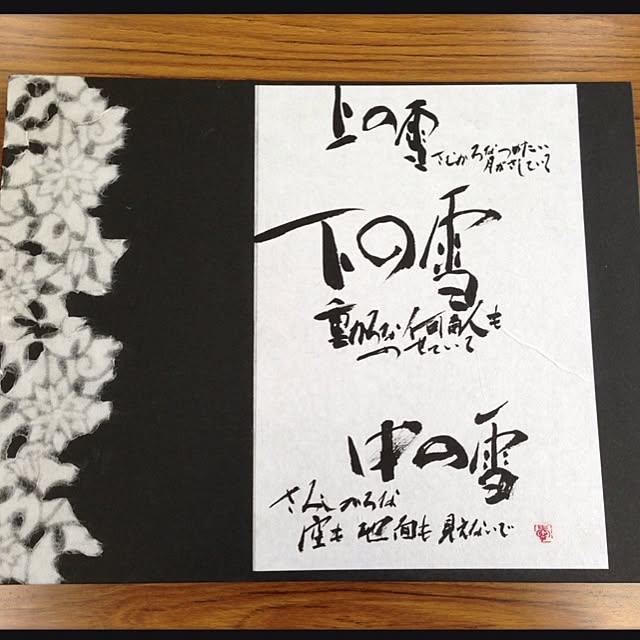 上の雪
さむかろなつめたい
月がさしていて
下の雪
重かろな何百人も
のせていて
中の雪
さみしかろな
空も地面も見えないで